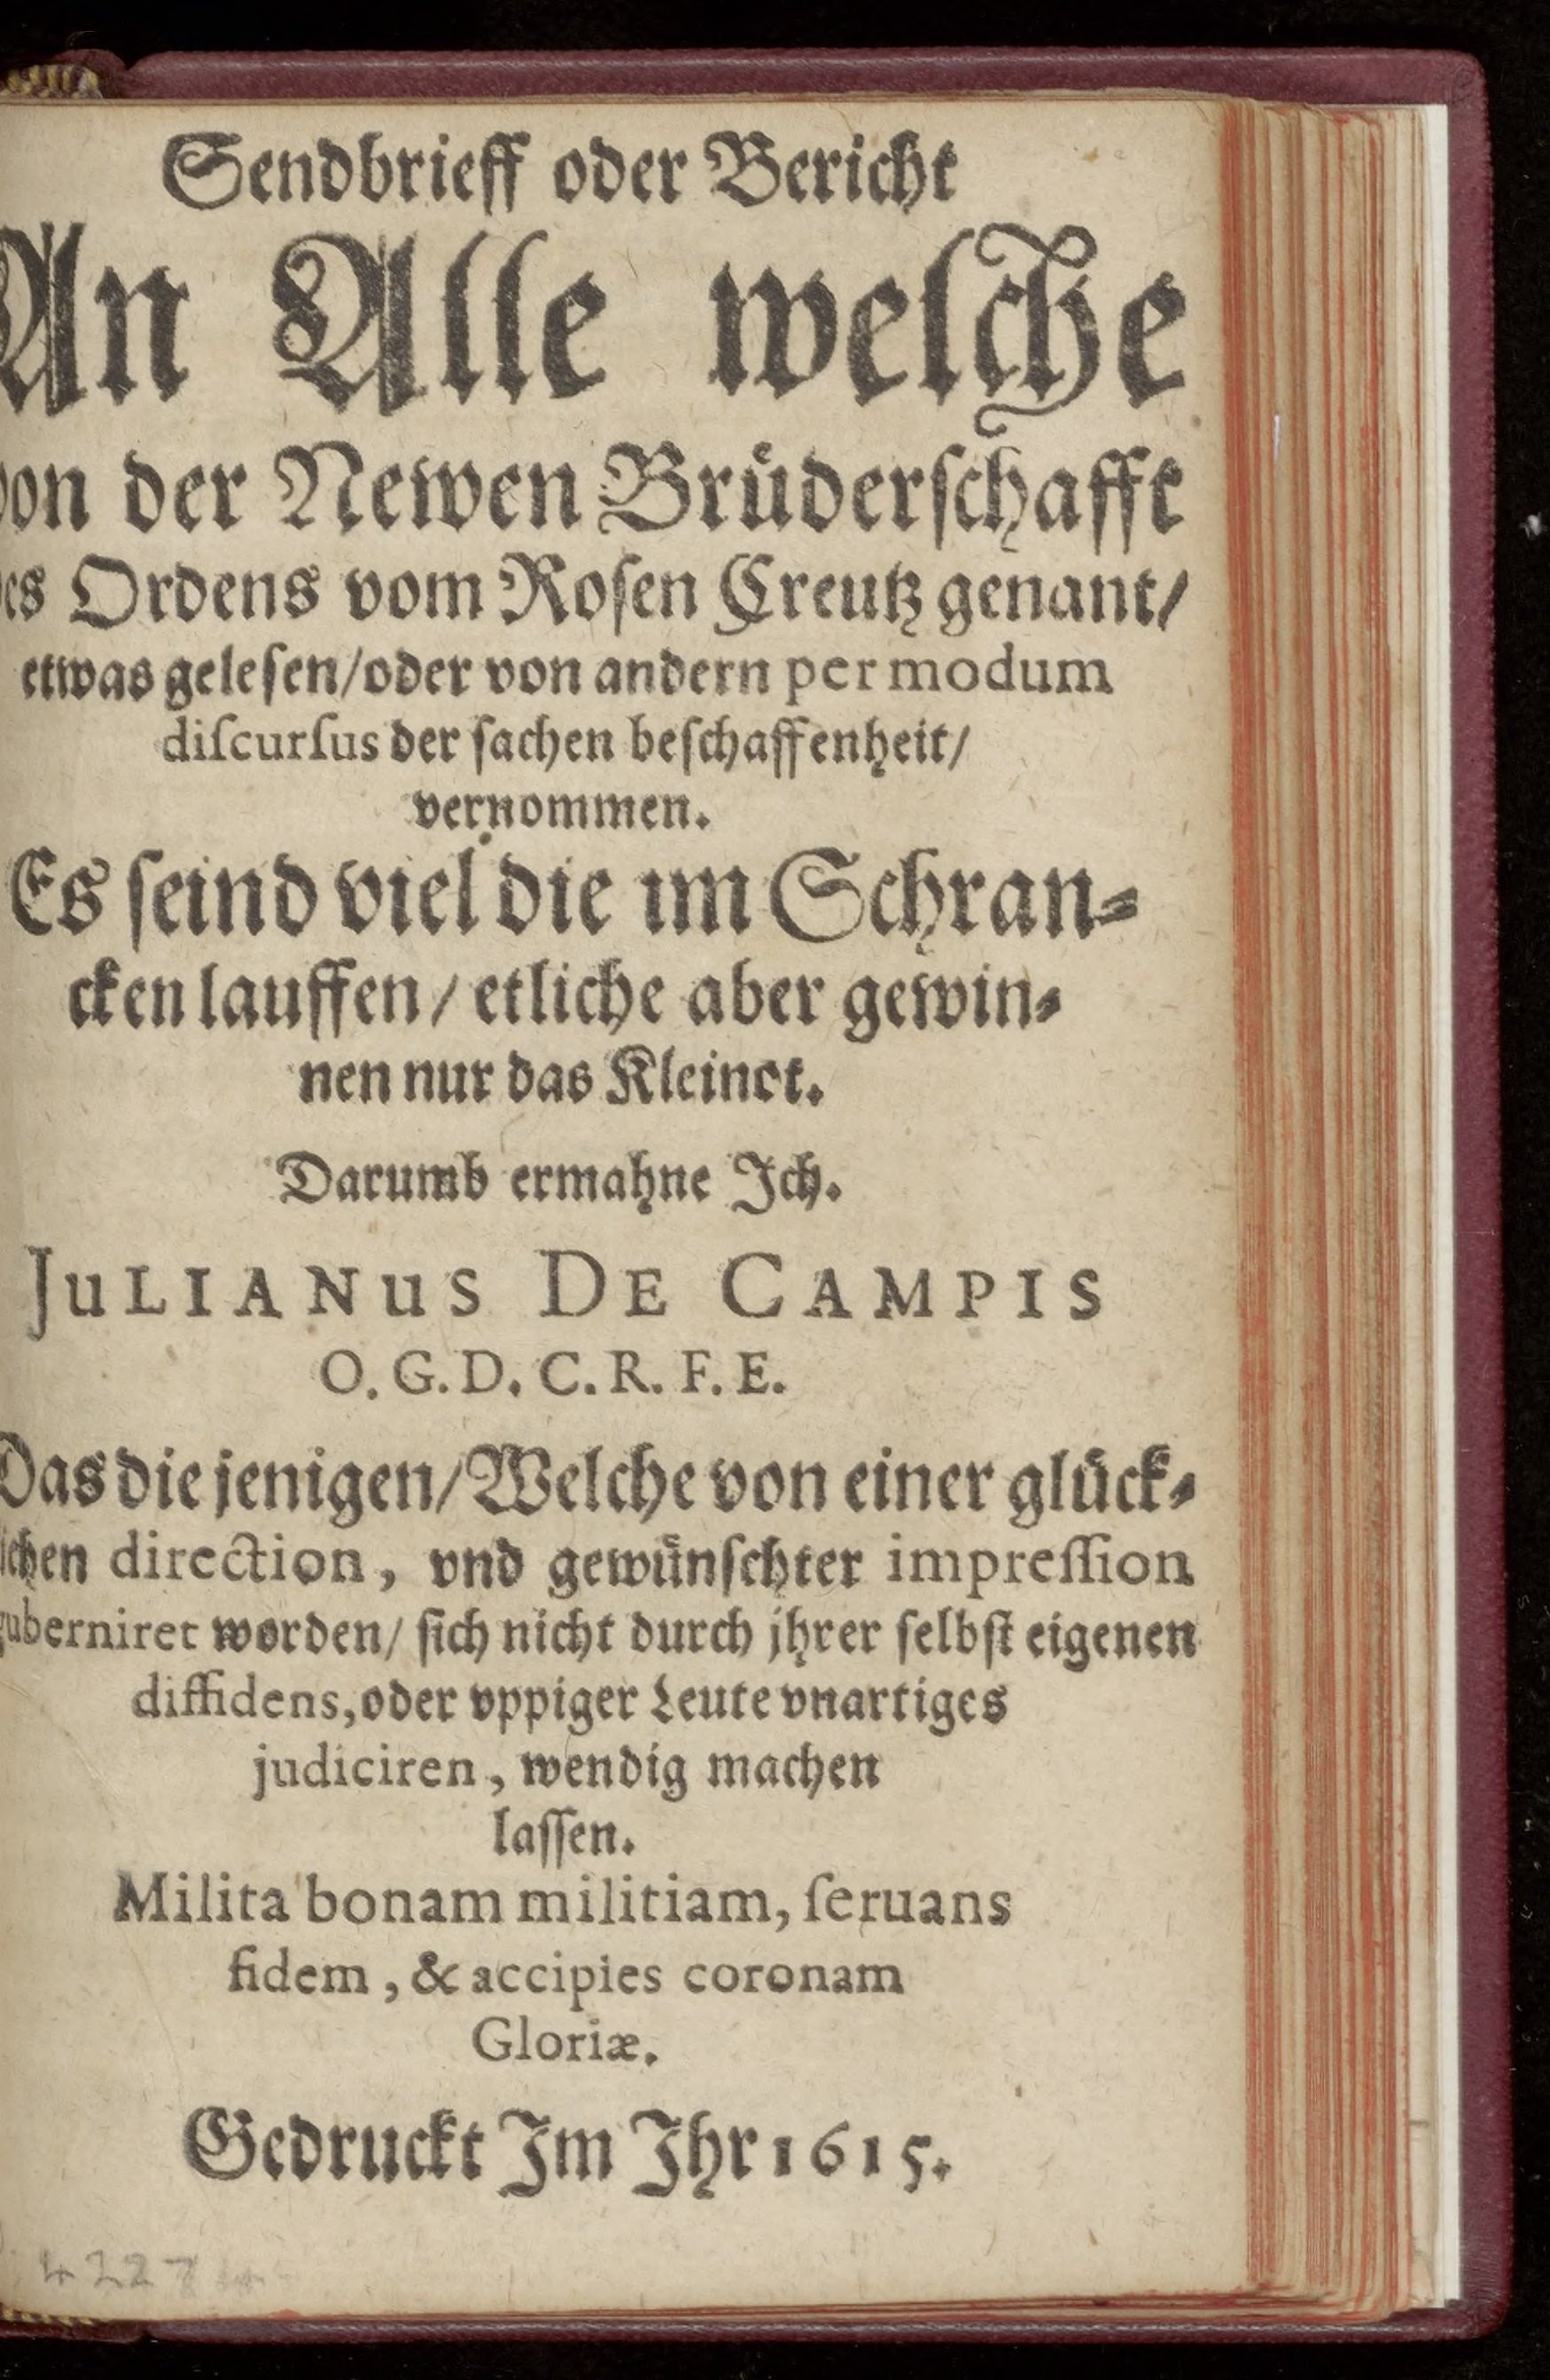 Sendbrieff oder Bericht
An Alle welche
von der Newen Brüderschafft
des Ordens vom Rosen Creutz genant/
etwas gelesen/oder von andern per modum
diſcurſus der ſachen beſchaffenheit/
vernommen.
Es ſeind viel die im Schran⸗
cken lauffen / etliche aber gewin⸗
nen nur das Kleinot.
Darumb ermahne Ich.
JuLIANuS DE CAMPIS
O. G. D. C. R. F. E.
Das die jenigen/Welche von einer glück⸗
lichen direction, vnd gewünſchter impreſſion
guberniret worden/ ſich nicht durch jhrer ſelbſt eigenen
diffidens, oder vppiger Leute vnartiges
judiciren, wendig machen
laſſen.
Milita bonam militiam, ſeruans
fidem, & accipies coronam
Gloriæ.
Gedruckt Im Ihr 1615.
4227